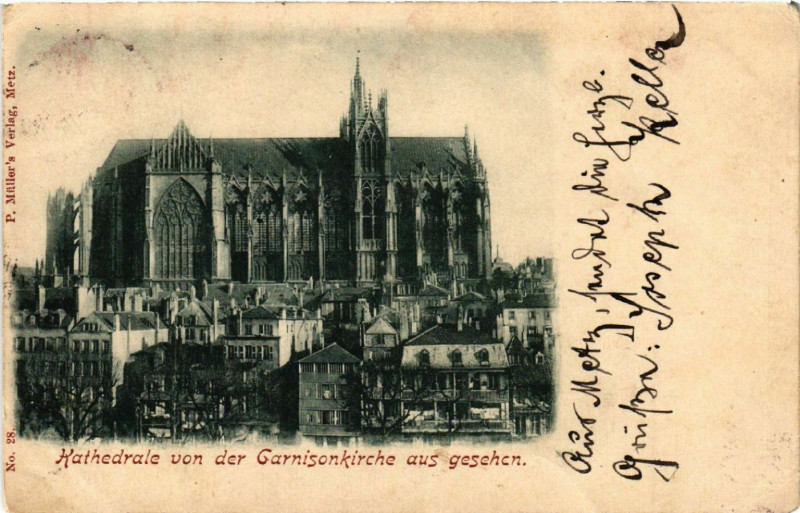 P. Müller's Verlag, Metz.
No. 28.
Kathedrale von der Garnisonkirche aus gesehen.
Aus Metz, sendet die herzl.
Grüße: Josepha Keller